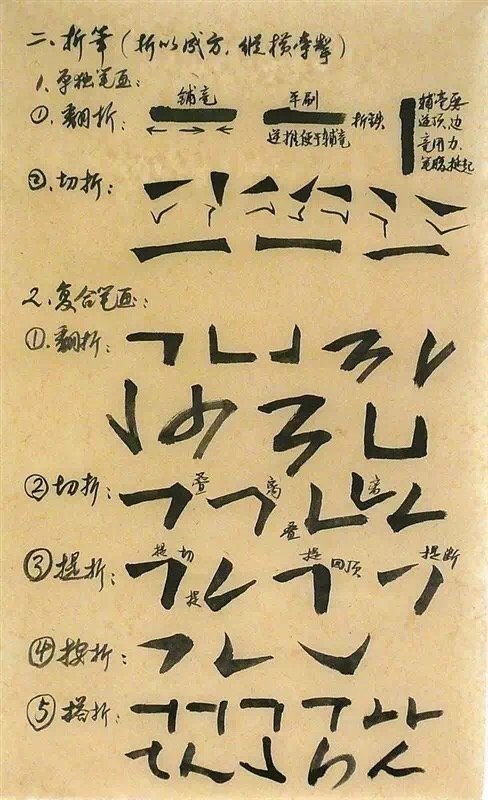 二、折笔(折以成方,纵横牵掣)
1、单独笔画:
①、翻折:
铺毫
平刷
逆推便于铺毫
折铁
辅毫要
逆顶,边
毫用力,
笔腹挺起
②、切折:
2、复合笔画:
①、翻折:
②切折: 叠 离 叠 离
③提折: 提 切 提 提 回顶 提断
④按折:
⑤搭折: